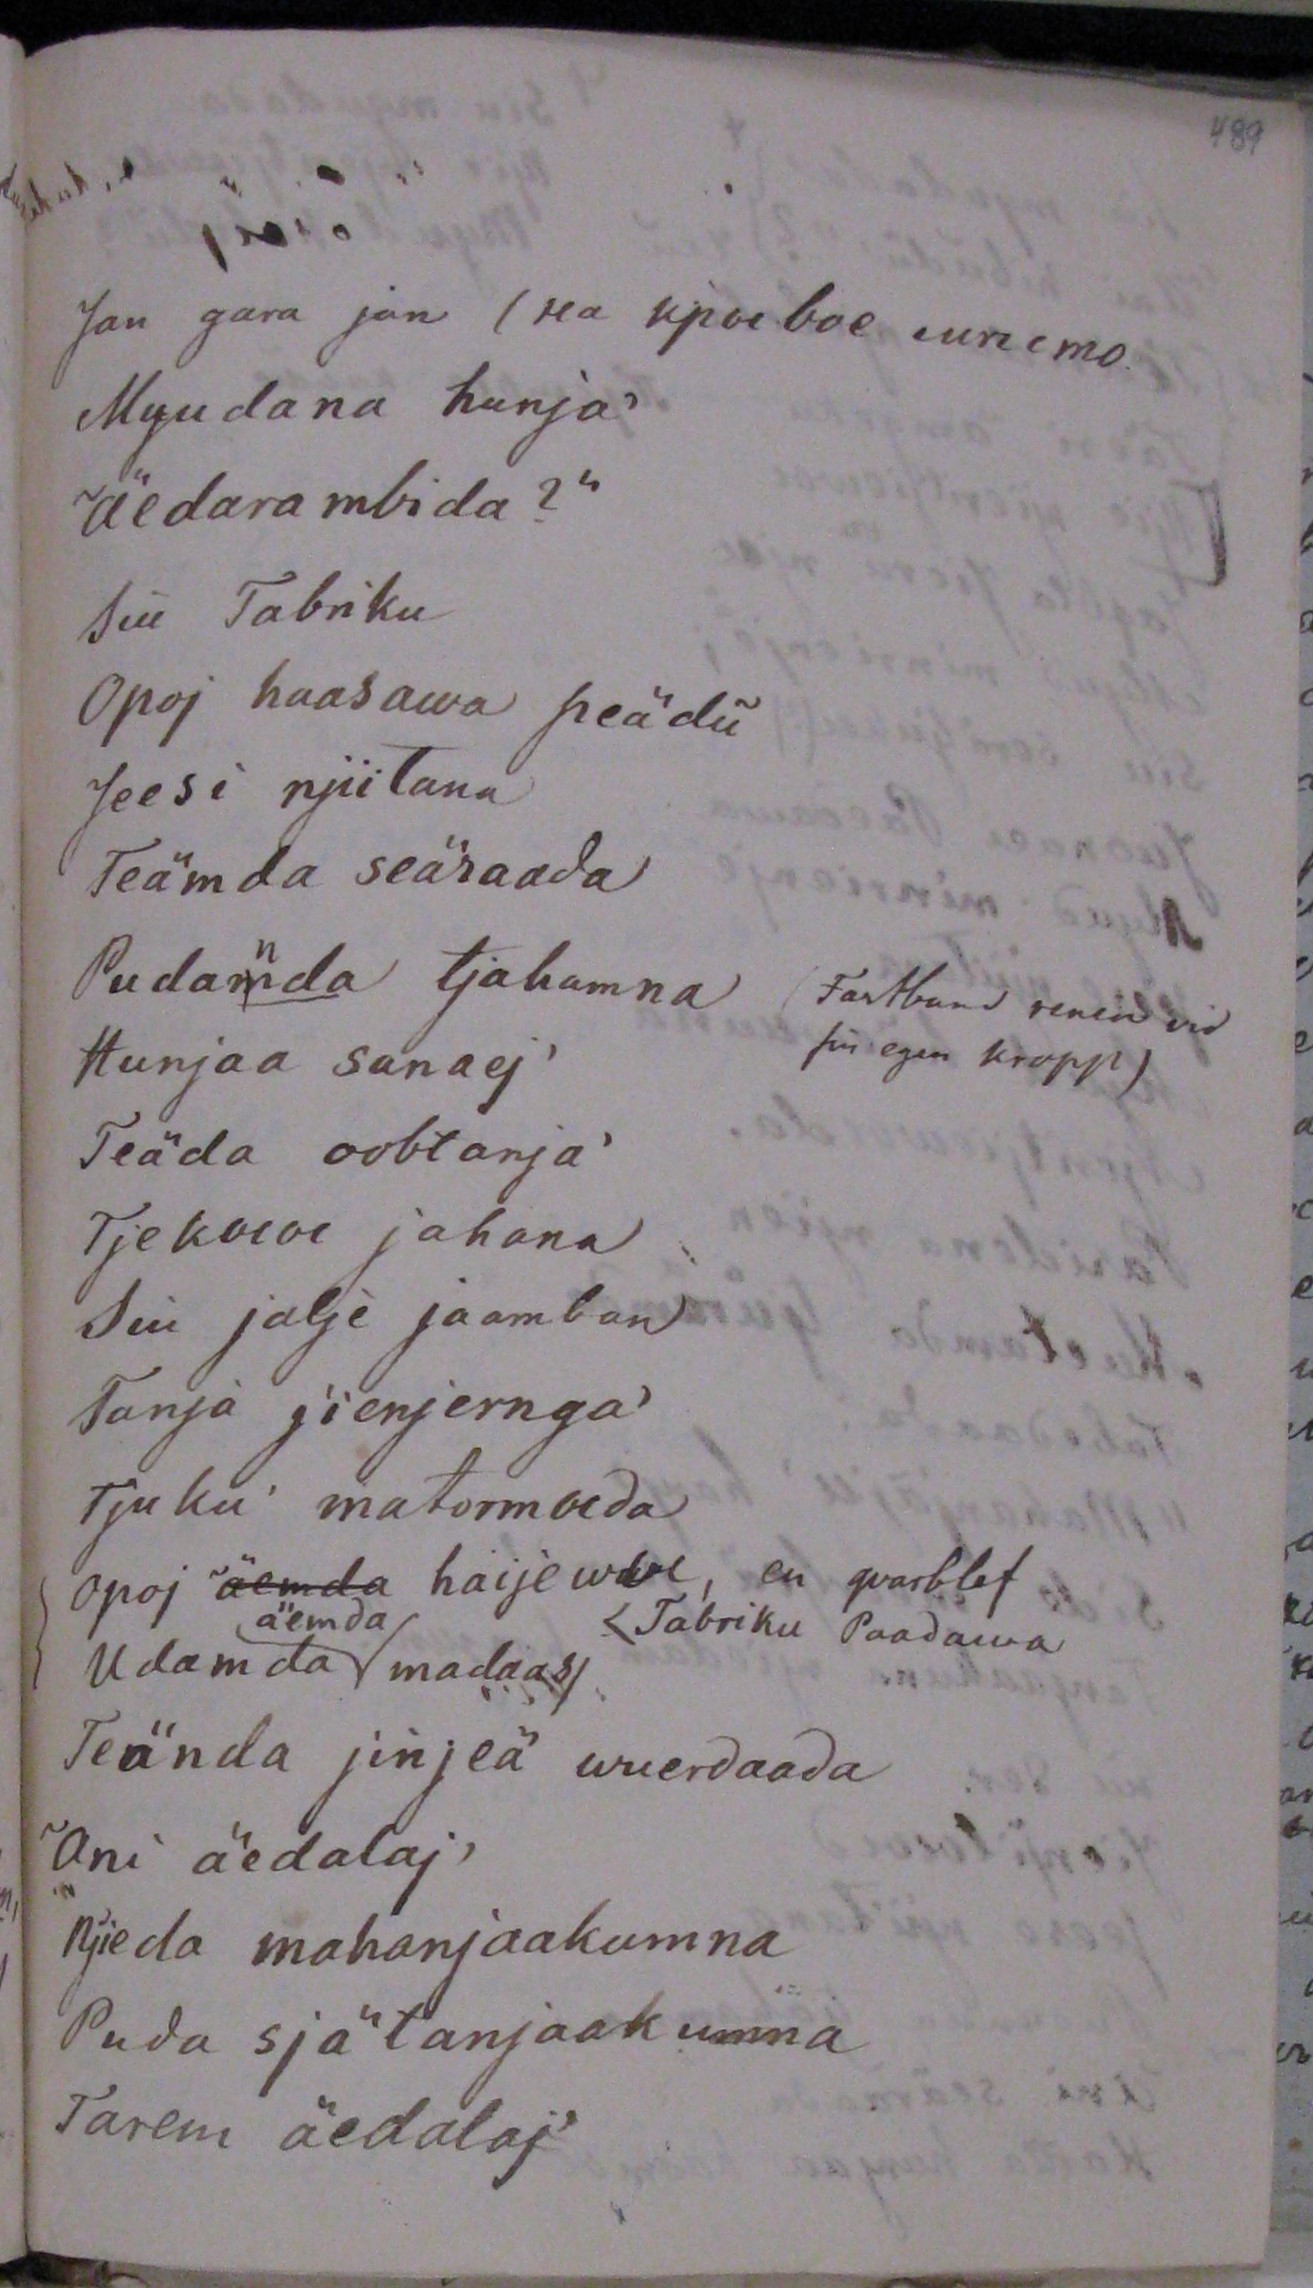 489
Jan gara jan (на кривое место
Myudana hunja'
"Äedarambida?"
Siu Tabriku
Opoj haasawa peädü
Jeesi njiitana
Teämda seäraada
Pudanda tjahamna (Fastband renen vid
sin egen kropp)
Hunjaa sanaej'
Teäda oobtanja'
Tjekowoe jahana
Siu jalje jaamban
Tanja jienjernga'
Tjuku' matormoeda
Opoj äemda haijewwe, en qvarblef
äemda <Tabriku Paadawa
Udamda madaas/
Teända jinjeä wuerdaada
"Oni äedalaj'
Njieda mahanjaakumna
Puda sjätanjaakumna
Tarem äedalaj'